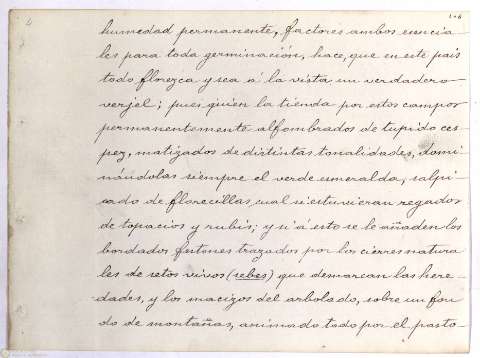 humedad permanente, factores ambos esencia
les para toda germinación, hace, que en este país
todo florezca y sea á la vista, un verdadero
verjel; pues quien la tienda por estos campos
permanentemente alfombrados de tupido ces
pez, matizados de distintas tonalidades, domi
nándolas siempre el verde esmeralda, salpi
cado de florecillas, cual si estuvieran regados
de topacios y rubis; y si á esto se le añaden los
bordados festones trazados por los cierres natura
les de setos vivos (sebes) que demarcan las here
dades, y los macizos del arbolado, sobre un fon
do de montañas, animado todo por el pasto-